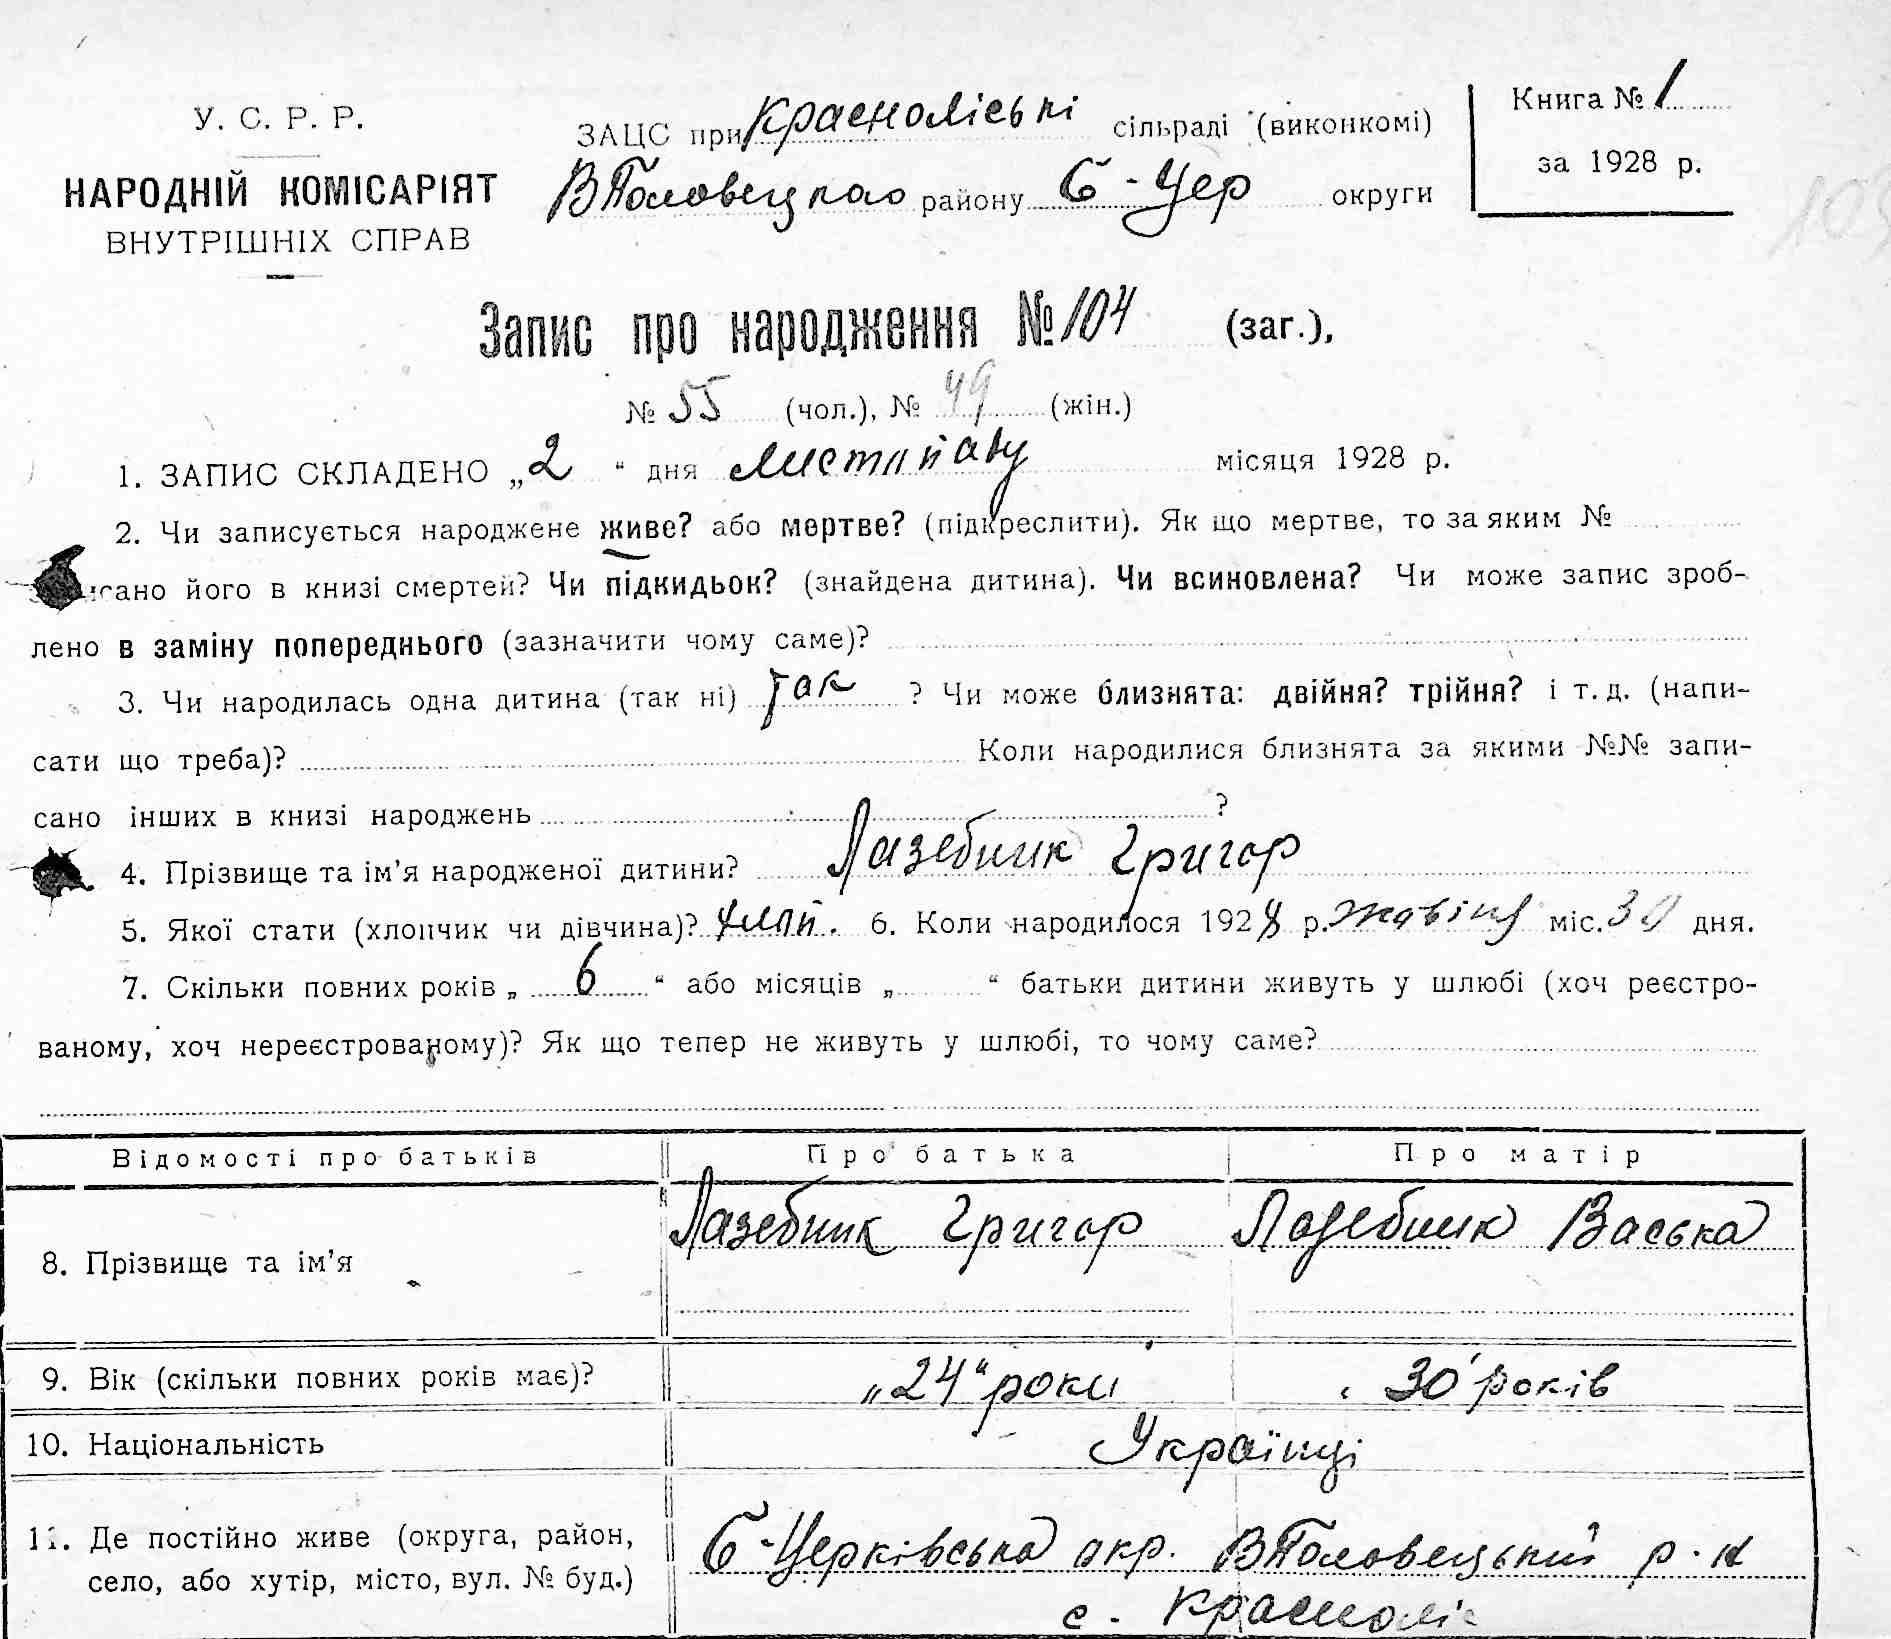 У. С. Р. Р.
НАРОДНІЙ КОМІСАРІЯТ
ВНУТРІШНІХ СПРАВ
ЗАЦС при Красноліські сільраді (виконкомі)
ВПоловецького району Б-Цер округи
Книга № 1
за 1928 р.
Запис про народження № 104 (заг.),
№ 55 (чол.), № 49 (жін.)
1. ЗАПИС СКЛАДЕНО „2“ дня листопаду місяця 1928 р.
2. Чи записується народжене живе? або мертве? (підкреслити). Як що мертве, то за яким №
писано його в книзі смертей? Чи підкидьок? (знайдена дитина). Чи всиновлена? Чи може запис зроб-
лено в заміну попереднього (зазначити чому саме)?
3. Чи народилась одна дитина (так ні) так ? Чи може близнята: двійня? трійня? і т. д. (напи-
сати що треба)? Коли народилися близнята за якими №№ запи-
сано інших в книзі народжень ?
4. Прізвище та ім'я народженої дитини? Лазебник Григор
5. Якої стати (хлопчик чи дівчина)? 6. Коли народилося 1928 р. жовтня міс. 30 дня.
7. Скільки повних років „ 6 “ або місяців „ “ батьки дитини живуть у шлюбі (хоч реєстро-
ваному, хоч нереєстрованому)? Як що тепер не живуть у шлюбі, то чому саме?
Відомості про батьків Про батька Про матір
8. Прізвище та ім'я Лазебник Григор Лазебник Васька
9. Вік (скільки повних років має)? „24“ роки 30 років
10. Національність Українці
11. Де постійно живе (округа, район, Б-Церківська окр. ВПоловецький р-н
село, або хутір, місто, вул. № буд.) с. Красноліс